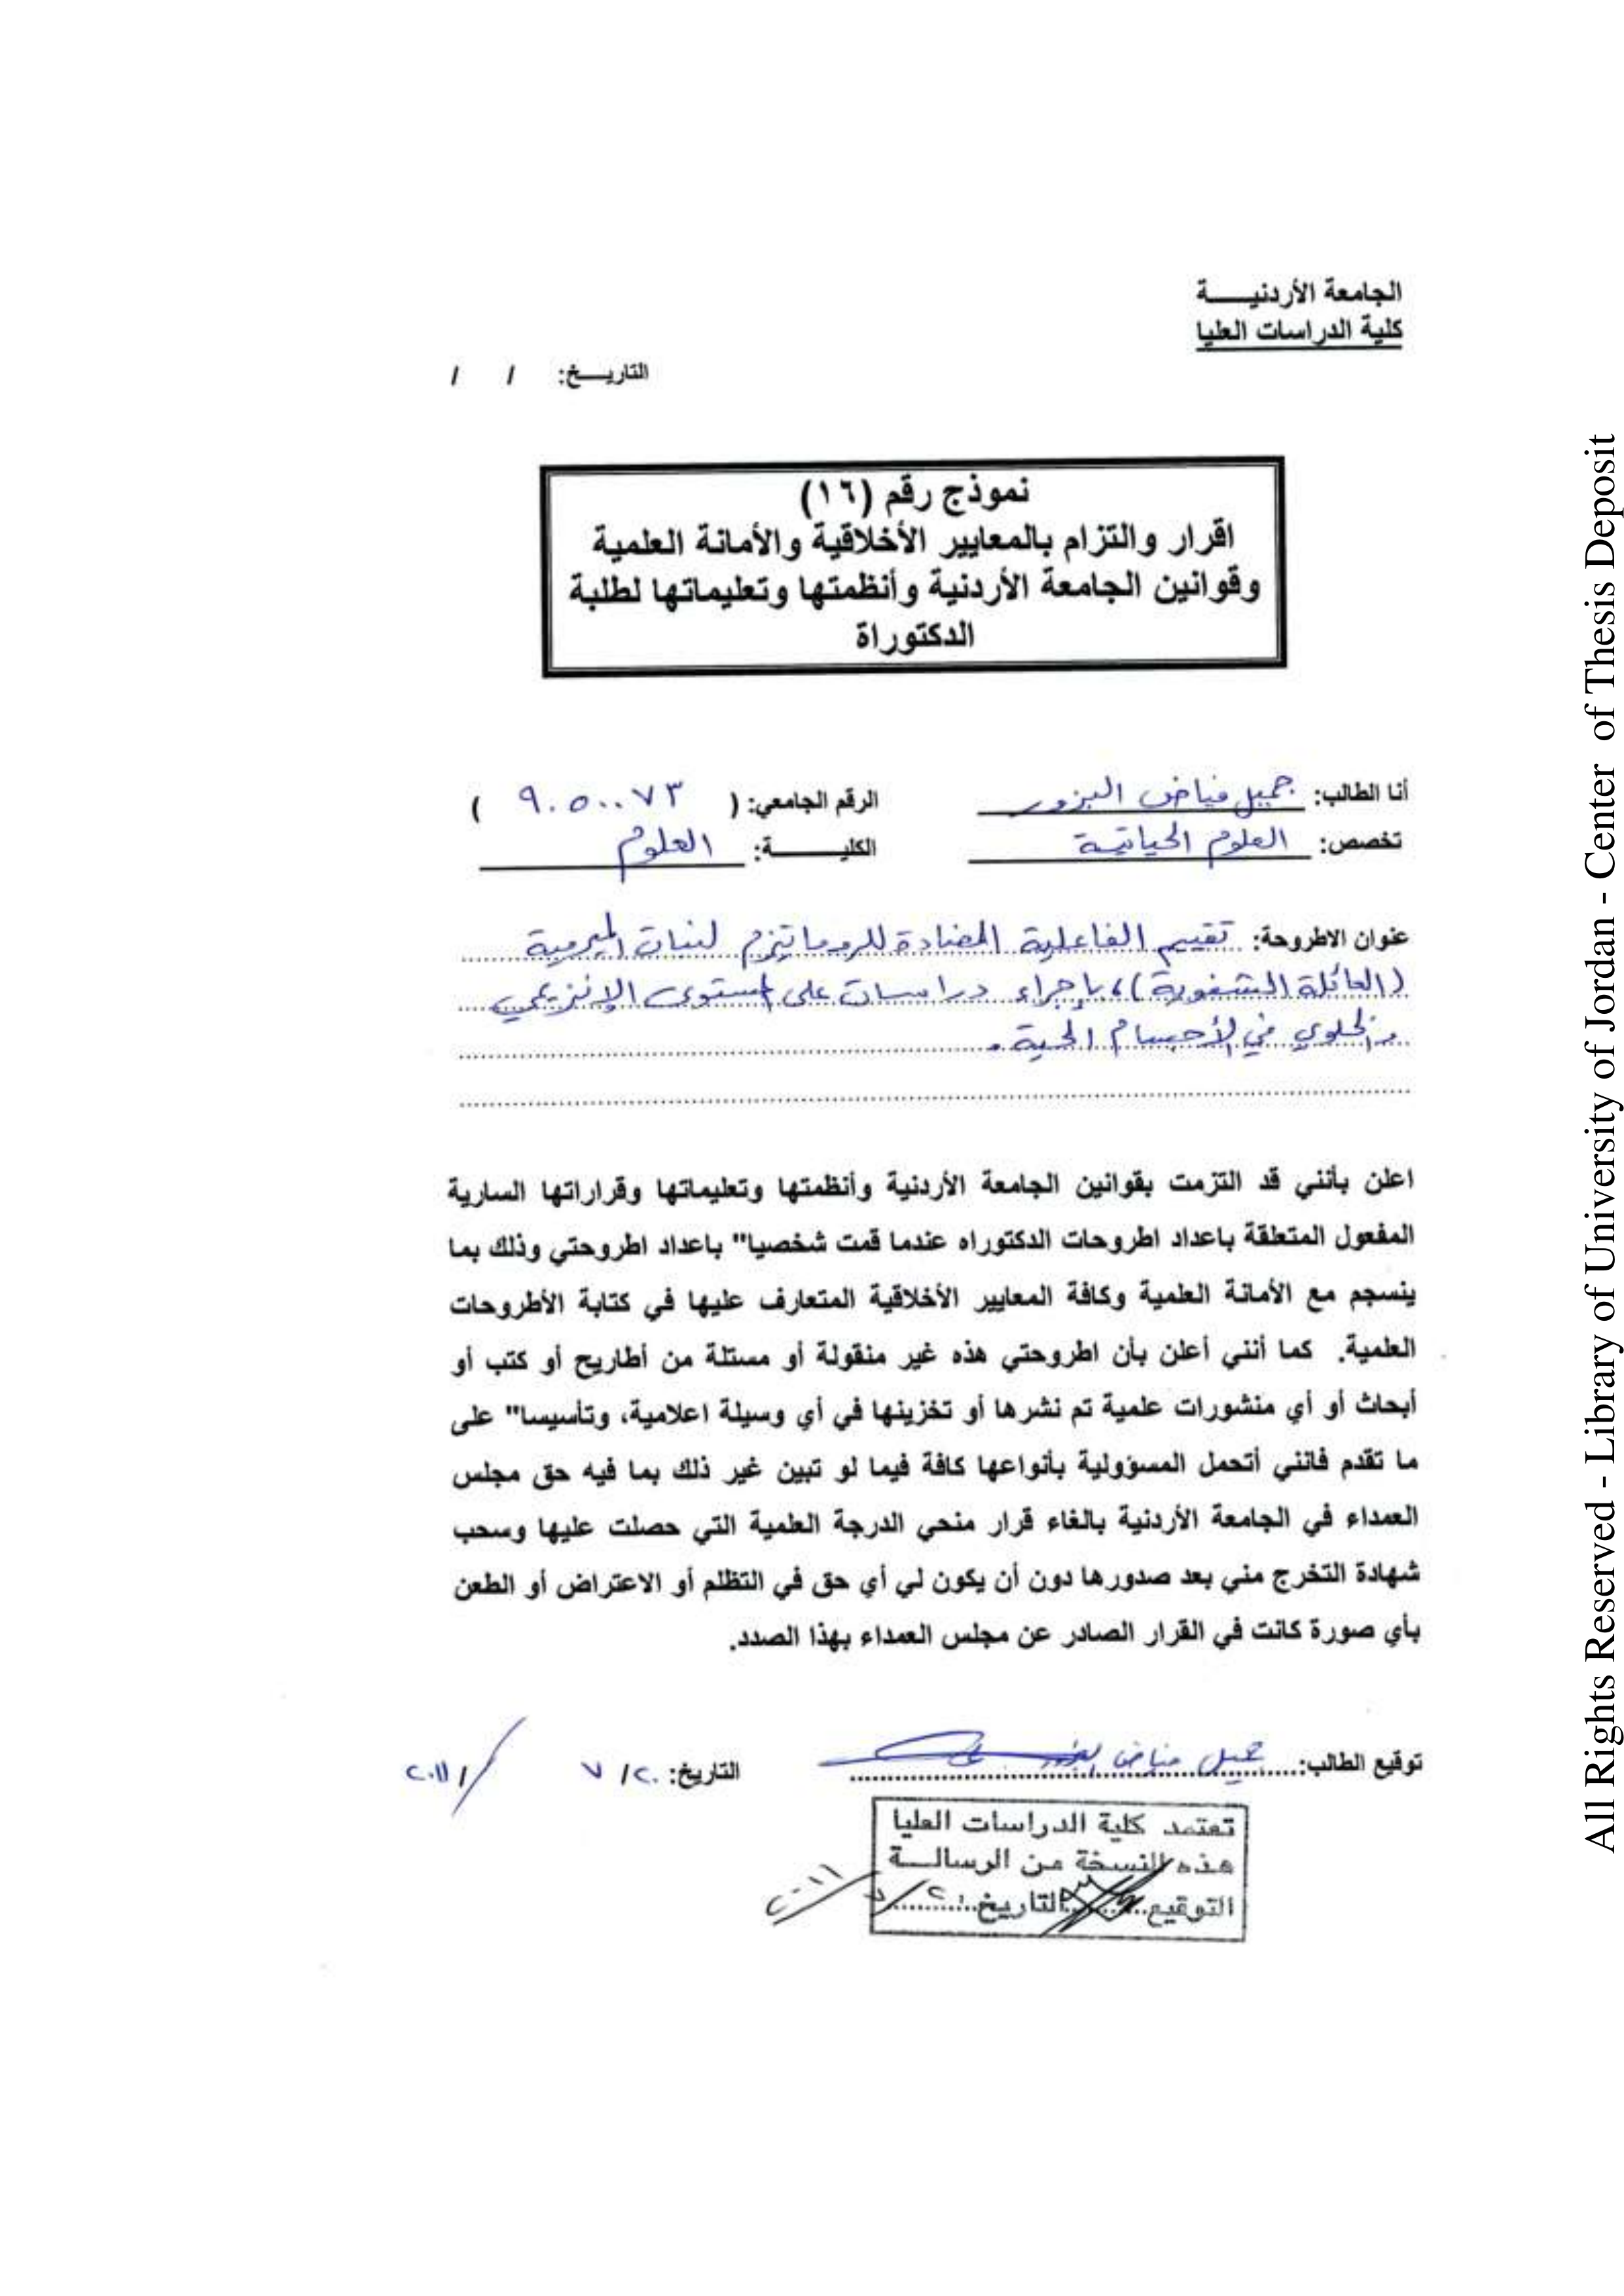 الجامعة الأردنيـــــة
كلية الدراسات العليا
التاريـــخ: / /
نموذج رقم (١٦)
اقرار والتزام بالمعايير الأخلاقية والأمانة العلمية
وقوانين الجامعة الأردنية وأنظمتها وتعليماتها لطلبة
الدكتوراة
أنا الطالب: جميل فياض البزور الرقم الجامعي: ( ٩٠٥٠٠٧٣ )
تخصص: العلوم الحياتية الكليـــــــة: العلوم
عنوان الاطروحة: تقييم الفاعلية المضادة للروماتيزم لنبات الميرمية
(العائلة الشفوية)، بإجراء دراسات على المستوى الإنزيمي
والخلوي في الأجسام الحية.
اعلن بأنني قد التزمت بقوانين الجامعة الأردنية وأنظمتها وتعليماتها وقراراتها السارية
المفعول المتعلقة باعداد اطروحات الدكتوراه عندما قمت شخصيا" باعداد اطروحتي وذلك بما
ينسجم مع الأمانة العلمية وكافة المعايير الأخلاقية المتعارف عليها في كتابة الأطروحات
العلمية. كما أنني أعلن بأن اطروحتي هذه غير منقولة أو مستلة من أطاريح أو كتب أو
أبحاث أو أي منشورات علمية تم نشرها أو تخزينها في أي وسيلة اعلامية، وتأسيسا" على
ما تقدم فانني أتحمل المسؤولية بأنواعها كافة فيما لو تبين غير ذلك بما فيه حق مجلس
العمداء في الجامعة الأردنية بالغاء قرار منحي الدرجة العلمية التي حصلت عليها وسحب
شهادة التخرج مني بعد صدورها دون أن يكون لي أي حق في التظلم أو الاعتراض أو الطعن
بأي صورة كانت في القرار الصادر عن مجلس العمداء بهذا الصدد.
توقيع الطالب: جميل فياض البزور التاريخ: ٢٠/ ٧ /٢٠١١
تعتمد كلية الدراسات العليا
هذه النسخة من الرسالــة
التوقيع.......التاريخ:.......
All Rights Reserved - Library of University of Jordan - Center of Thesis Deposit